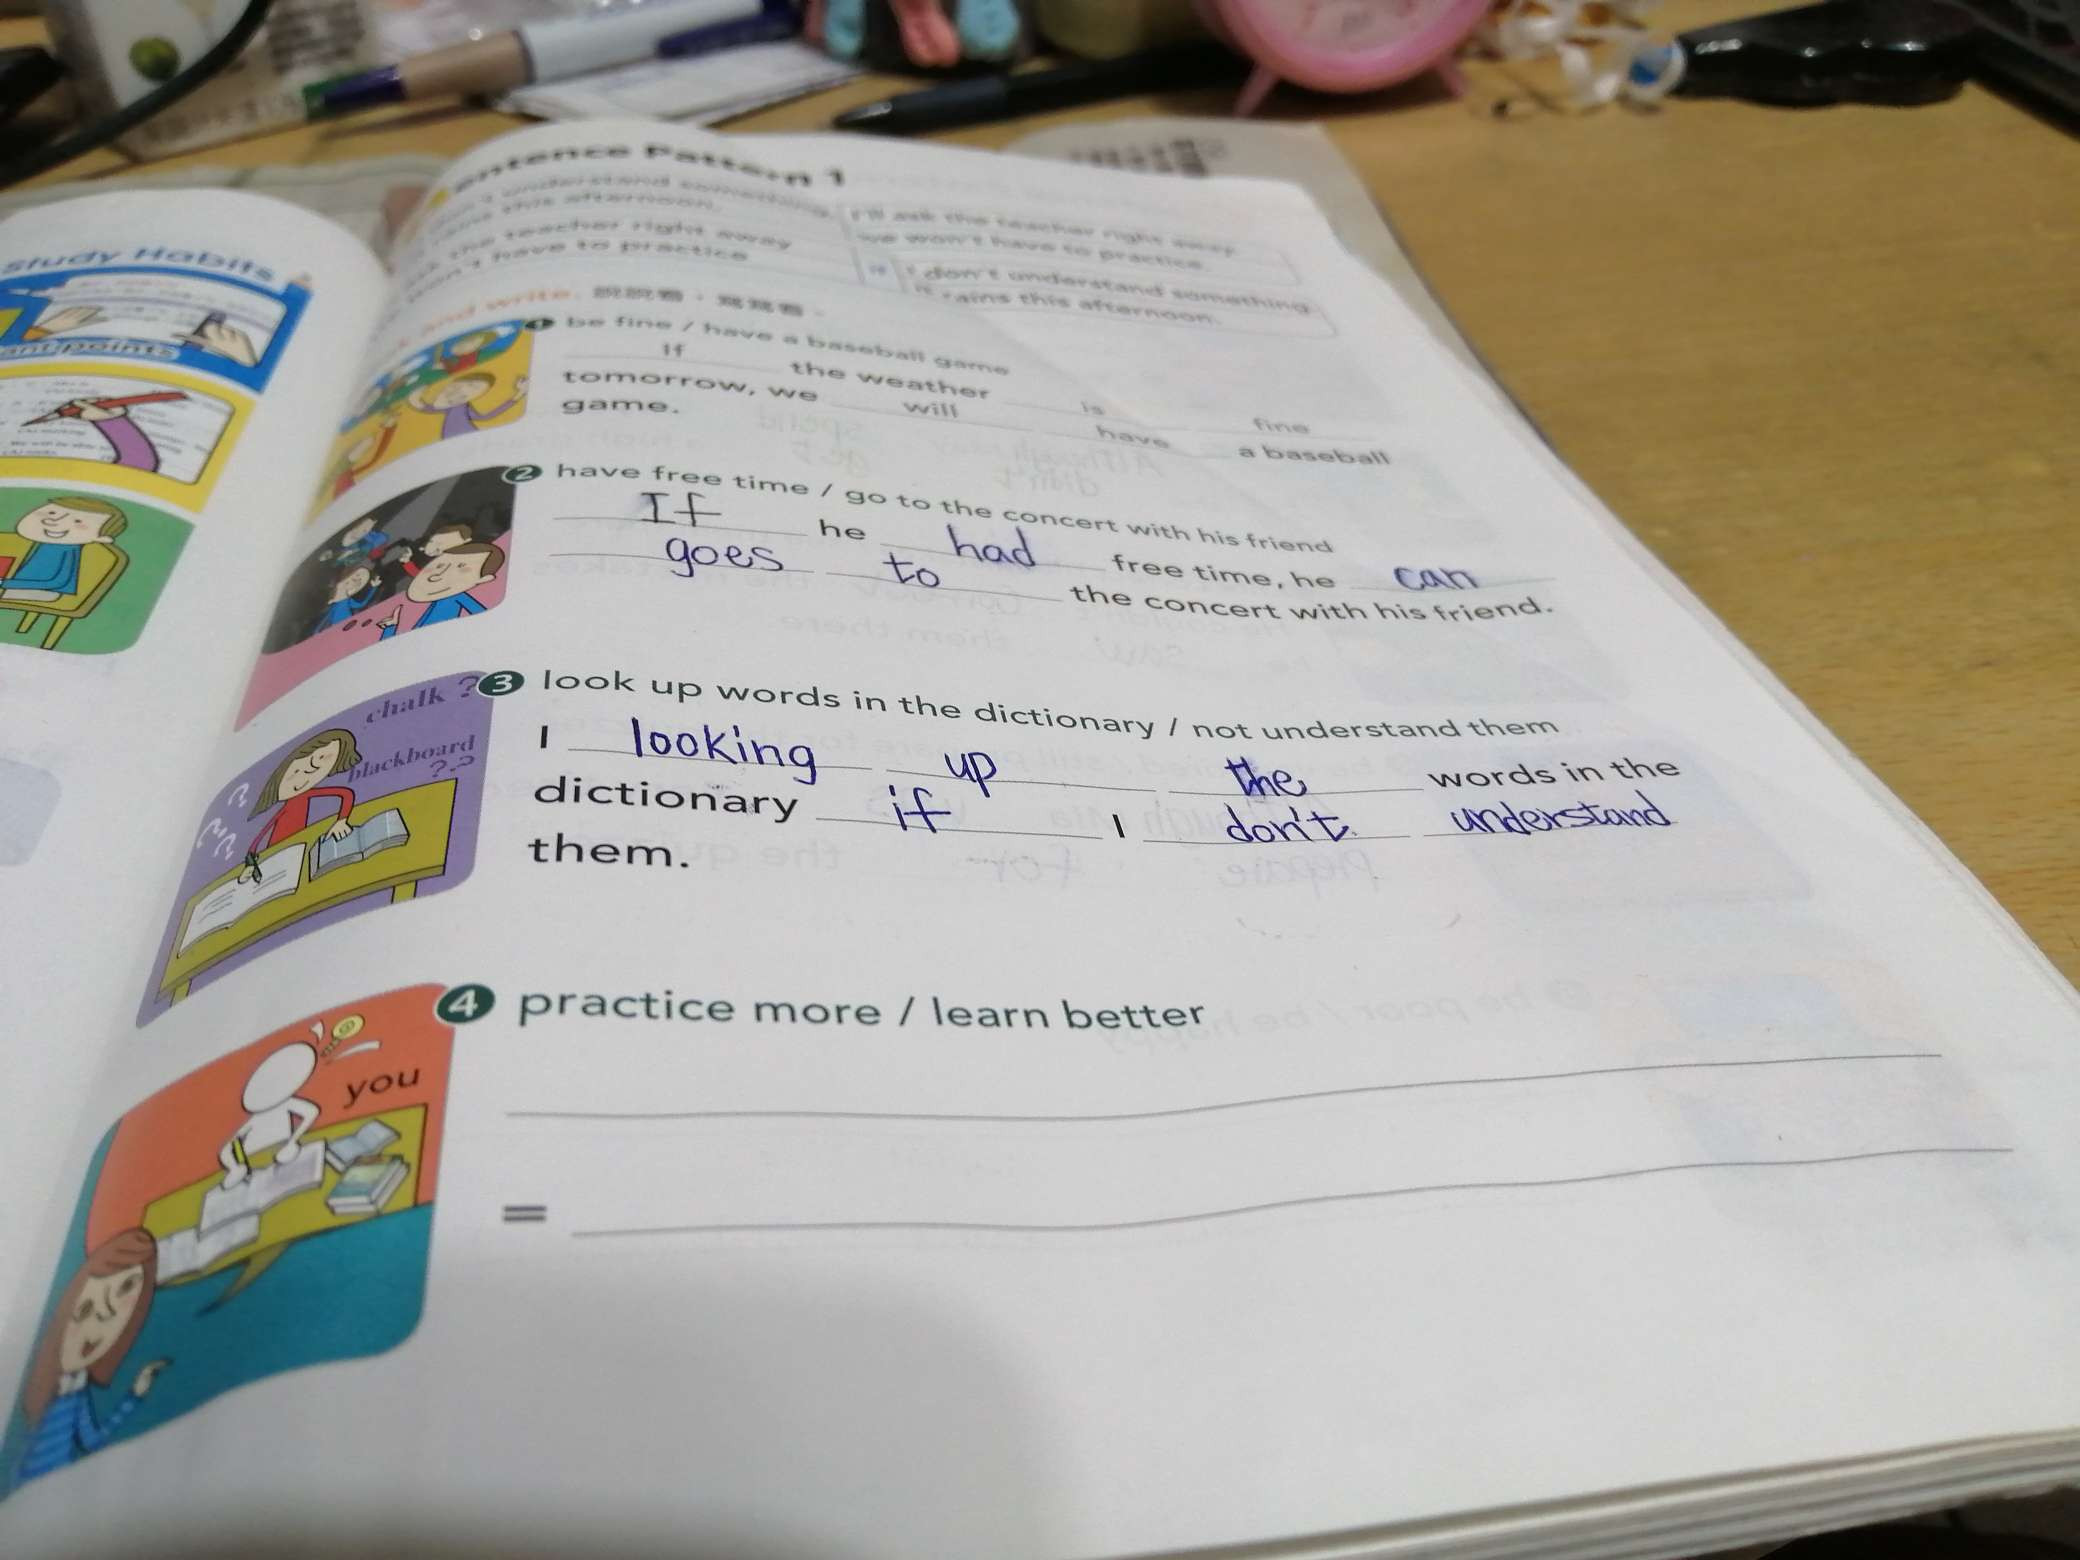 Study Habits
points
Sentence Pattern 1
understand something
this afternoon.
the teacher right away
won't have to practice
I'll ask the teacher right away.
we won't have to practice.
if I don't understand something.
it rains this afternoon.
and write. 說說看，寫寫看。
1 be fine / have a baseball game
If the weather is fine
tomorrow, we will have a baseball
game.
2 have free time / go to the concert with his friend
If he had free time, he can
goes to the concert with his friend.
chalk ?
blackboard
? ?
3 look up words in the dictionary / not understand them
I looking up the words in the
dictionary if I don't understand
them.
you
4 practice more / learn better
=